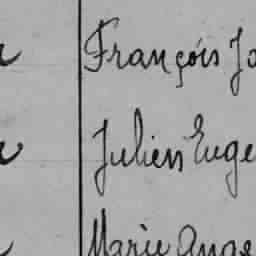 François Jo
Julien Euge
Marie Ange